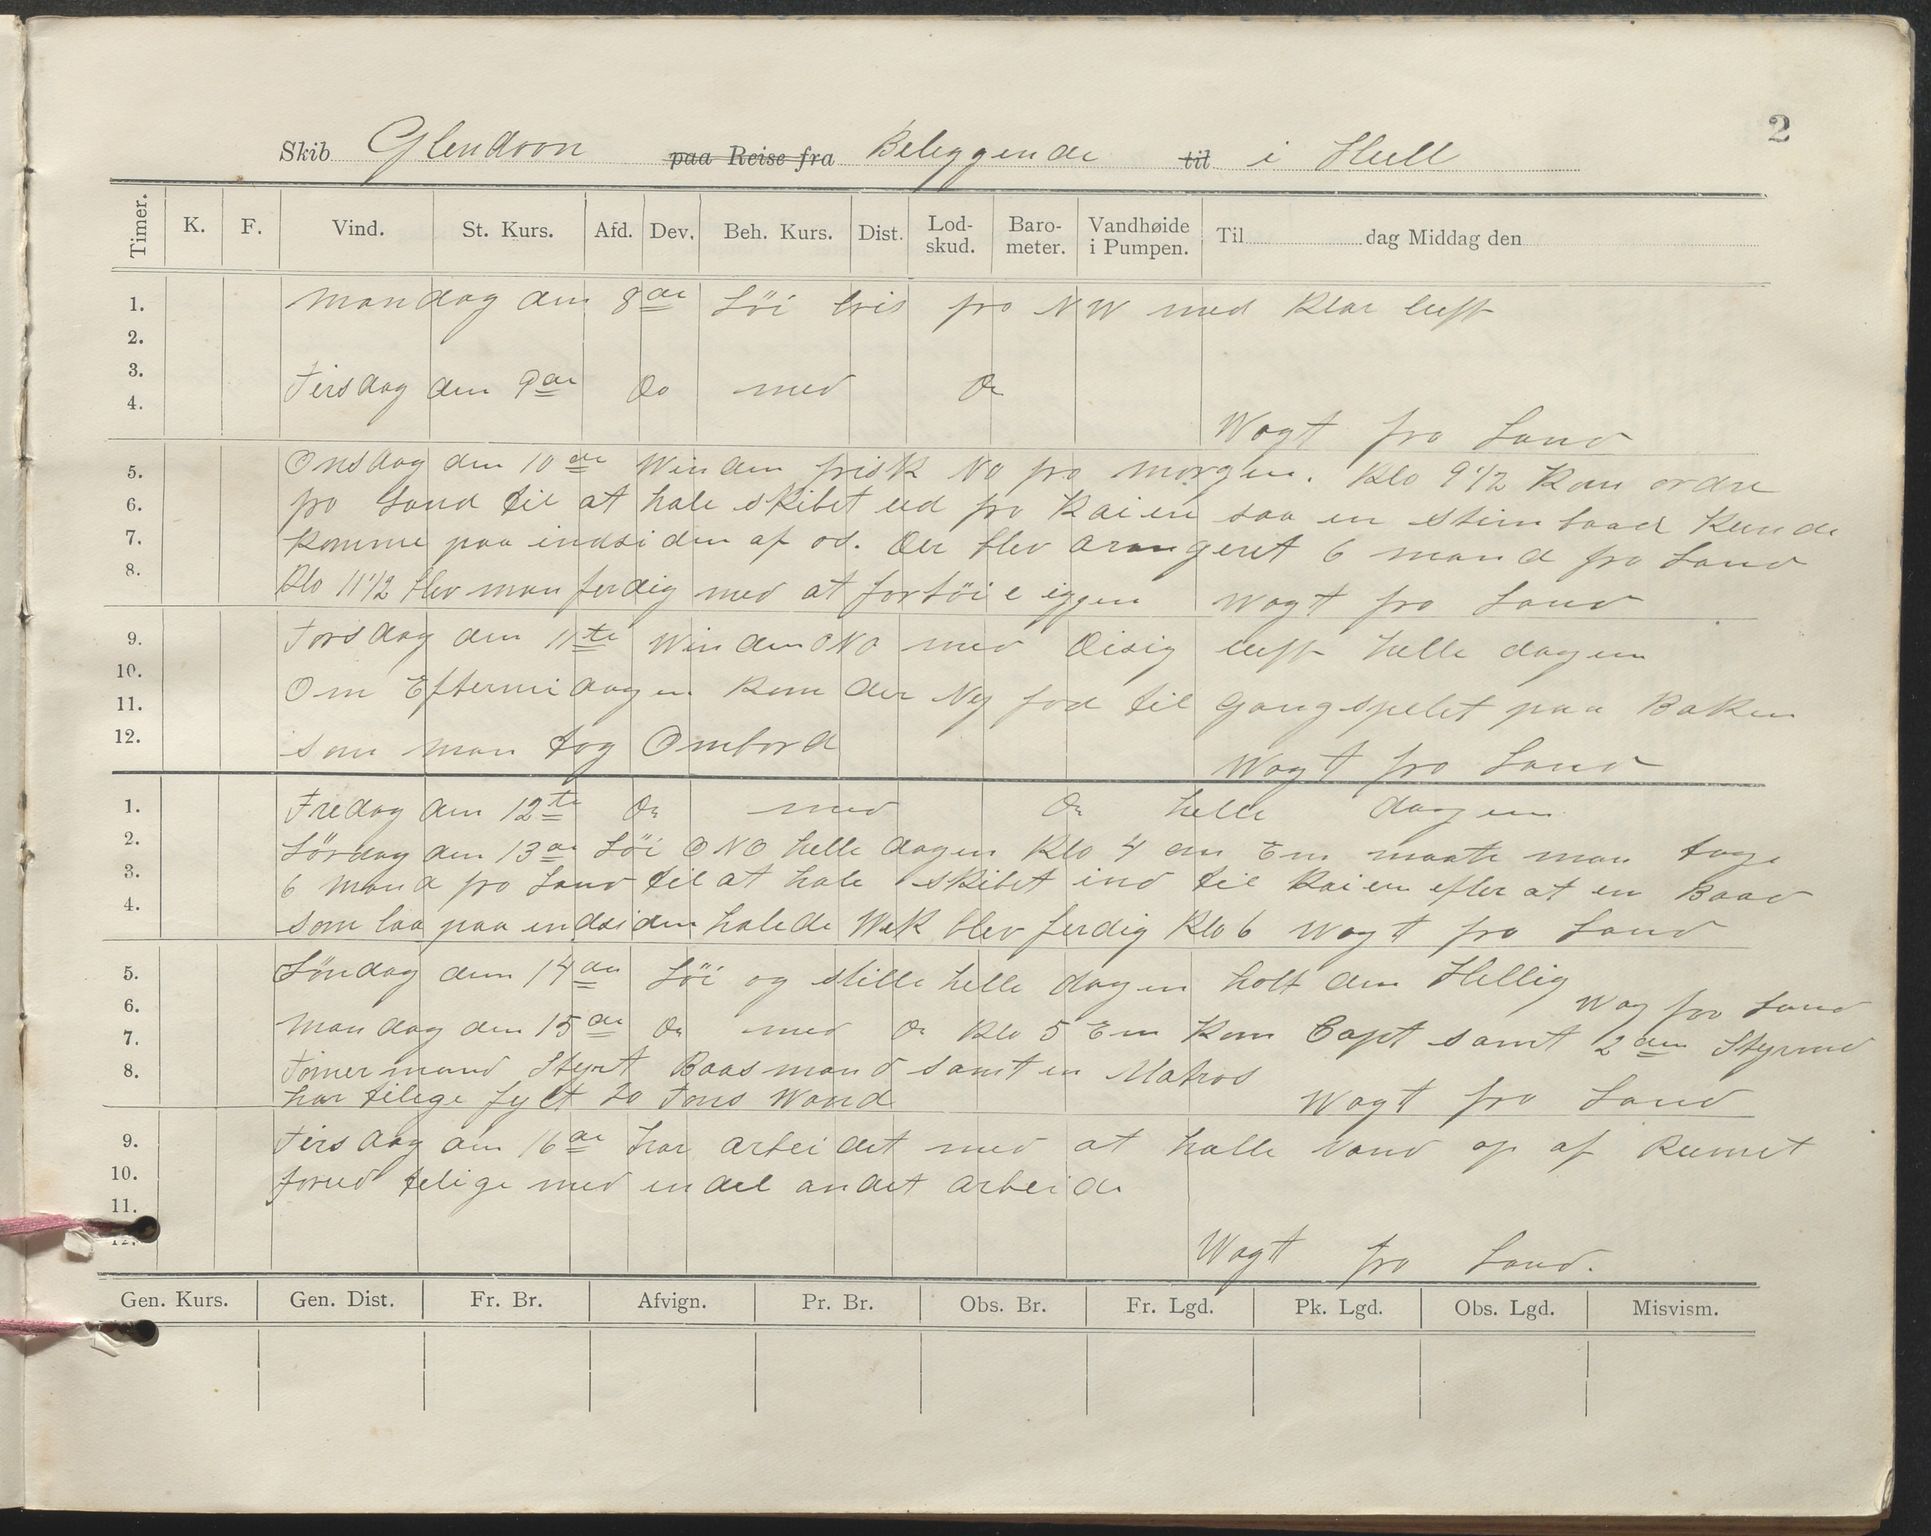 2
Skib Glendoon paa Reise fra Beliggende til i Hull
Timer. K. F. Vind. St. Kurs. Afd. Dev. Beh. Kurs. Dist. Lod-skud. Baro-meter. Vandhøide i Pumpen. Til dag Middag den
1. Mandag den 8de Löi bris fra NW med Klar luft
2.
3. Tirsdag den 9de Do med Do
4.
Wagt fra Land
5. Onsdag den 10de Winden frisk No fra morgen. Klo 9 1/2 Kom ordre
6. fra Land til at hale skibet ud fra Kaien saa en stimbaad Kunde
7. Komme paa indsiden af os. Der blev arangeret 6 mand fra Land
8. Klo 11 1/2 blev man ferdig med at fortöie iggen Wagt fra Land
9. Torsdag den 11te Winden ONO med Disig luft helle dagen
10.
11. Om Eftermidagen Kom der Ny fod til Gangspelet paa Baken
12. som man tog Ombord
Wagt fra Land
1. Fredag den 12te Do med Do helle dagen
2. Lördag den 13de Löi ONO helle dagen Klo 4 em maate man tage
3. 6 mand fra Land til at hale skibet ind til Kaien efter at en Baad
4. som laa paa indsiden halede Wek blev ferdig Klo 6 Wagt fra Land
5. Söndag den 14de Löi og stille helle dagen holt den Hellig
6. Wag fra Land
7. Mandag den 15de Do med Do Klo 5 Em Kom Capt samt 2den Styrmd
8. Tömermand Stjut Baasmand samt en Matros
har tilige fylt 20 Tons Wand Wagt fra Land
9. Tirsdag den 16de har arbeidet med at halle Vand op af Rumet
10. forud telige med endel andet arbeide
11.
12.
Wagt fra Land.
Gen. Kurs. Gen. Dist. Fr. Br. Afvign. Pr. Br. Obs. Br. Fr. Lgd. Pk. Lgd. Obs. Lgd. Misvism.